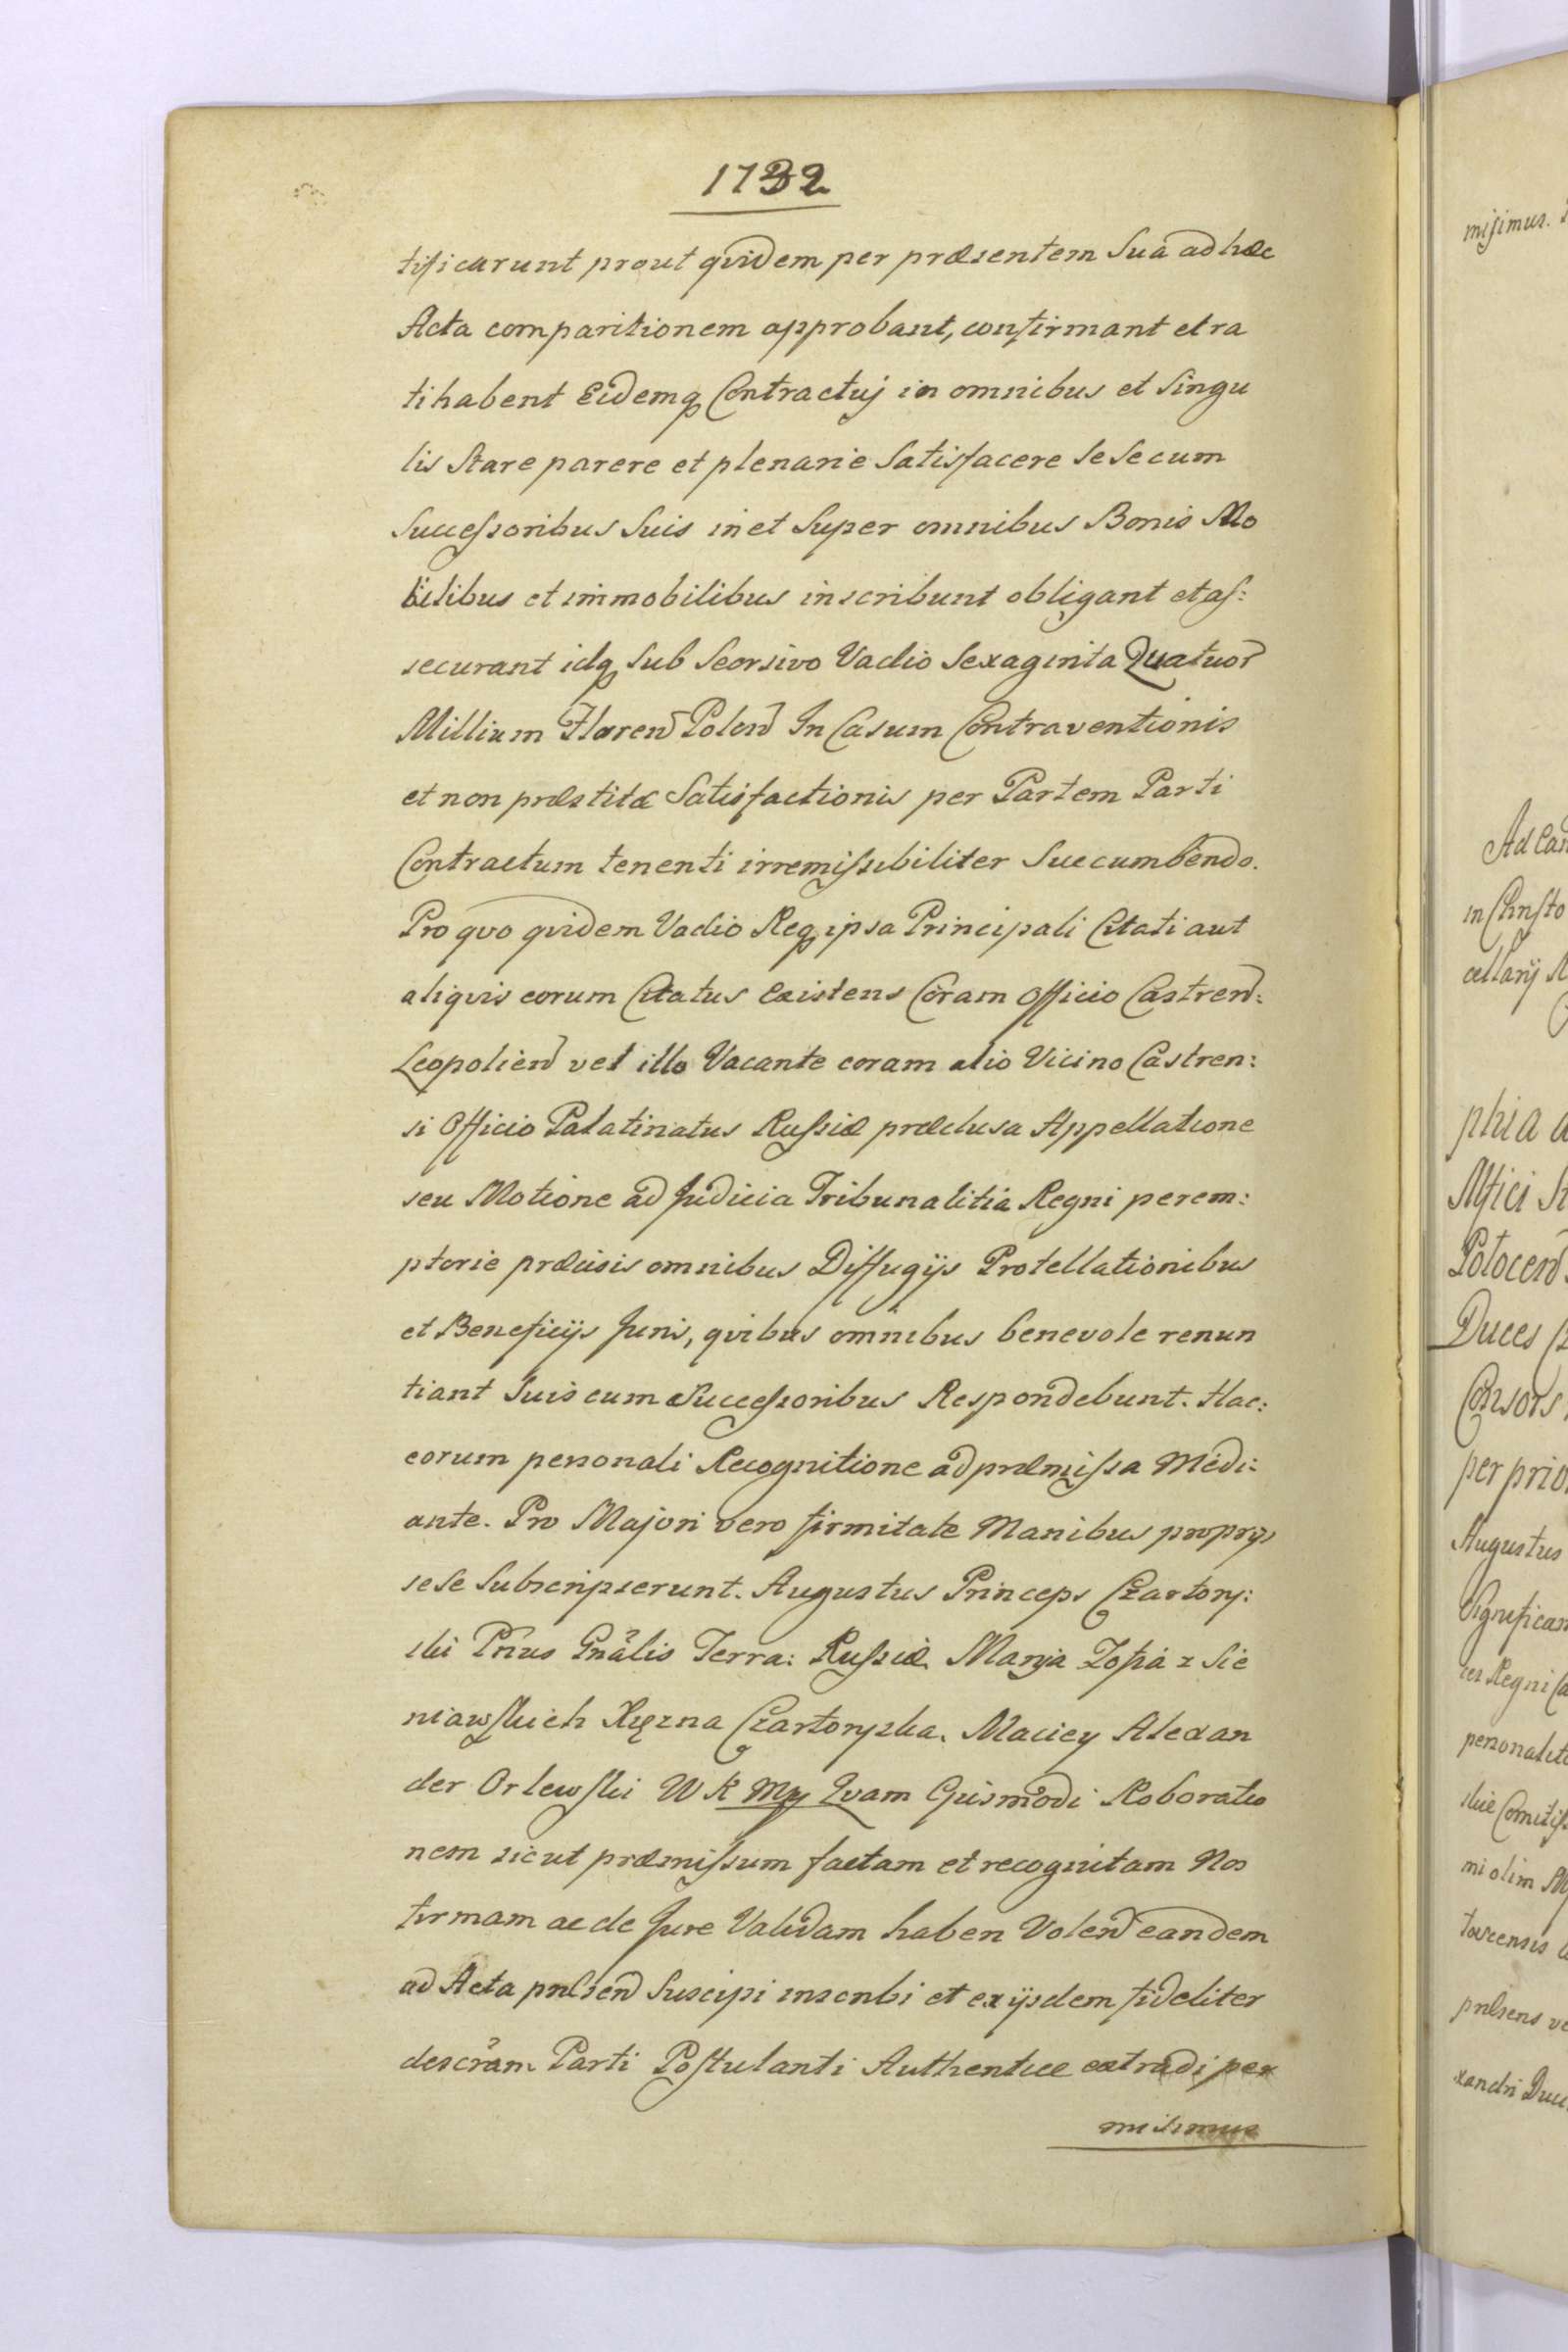 1732
tificarunt prout qvidem per præsentem Sua ad hæc
Acta comparitionem approbant, confirmant et ra
tihabent Eidemq Contractuj in omnibus et Singu
lis Stare parere et plenarie Satisfacere Se Se cum
Successoribus Suis in et Super omnibus Bonis Mo
bilibus et immobilibus inscribunt obligant et as:
securant idq Sub Seorsivo Vadio Sexaginta Quatuor
Millium Floren Polon In Casum Contraventionis
et non præstitæ Satisfactionis per Partem Parti
Contractum tenenti irremissibiliter Succumbendo.
Pro qvo qvidem Vadio Req ipsa Principali Citati aut
aliqvis eorum Citatus Existens Coram Officio Castren:
Leopolien vel illo Vacante coram alio Vicino Castren:
si Officio Palatinatus Russiæ præclusa Appellatione
seu Motione ad Judicia Tribunalitia Regni perem:
ptorie præcisis omnibus Diffugijs Protellationibus
et Beneficijs Juris, qvibus omnibus benevole renun
tiant Suis cum Successoribus Respondebunt. Hac:
eorum personali Recognitione ad præmissa Medi:
ante. Pro Majori vero firmitate Manibus proprijs
sese Subscripserunt. Augustus Princeps Czartory:
ski Pnus Gnalis Terra: Russiæ Marija Zofia z Sie
niawskich Xięzna Czartoryska. Maciey Alexan
der Orlewski W K Mpp Qvam Ejusmodi Roboratio
nem sicut præmissum factam et recognitam Nos
firmam ac de Jure Validam haben Volen eandem
ad Acta pnlsen Suscipi inscribi et ex ijsdem fideliter
descram Parti Postulanti Authentice extradi per
misimus
misimus.
Ad
in Christo
cellarij
phia
Mfici
Potocen
Duces
Consors
per
Augustus
Significan
Regni
mi olim
pnlsens
xandri